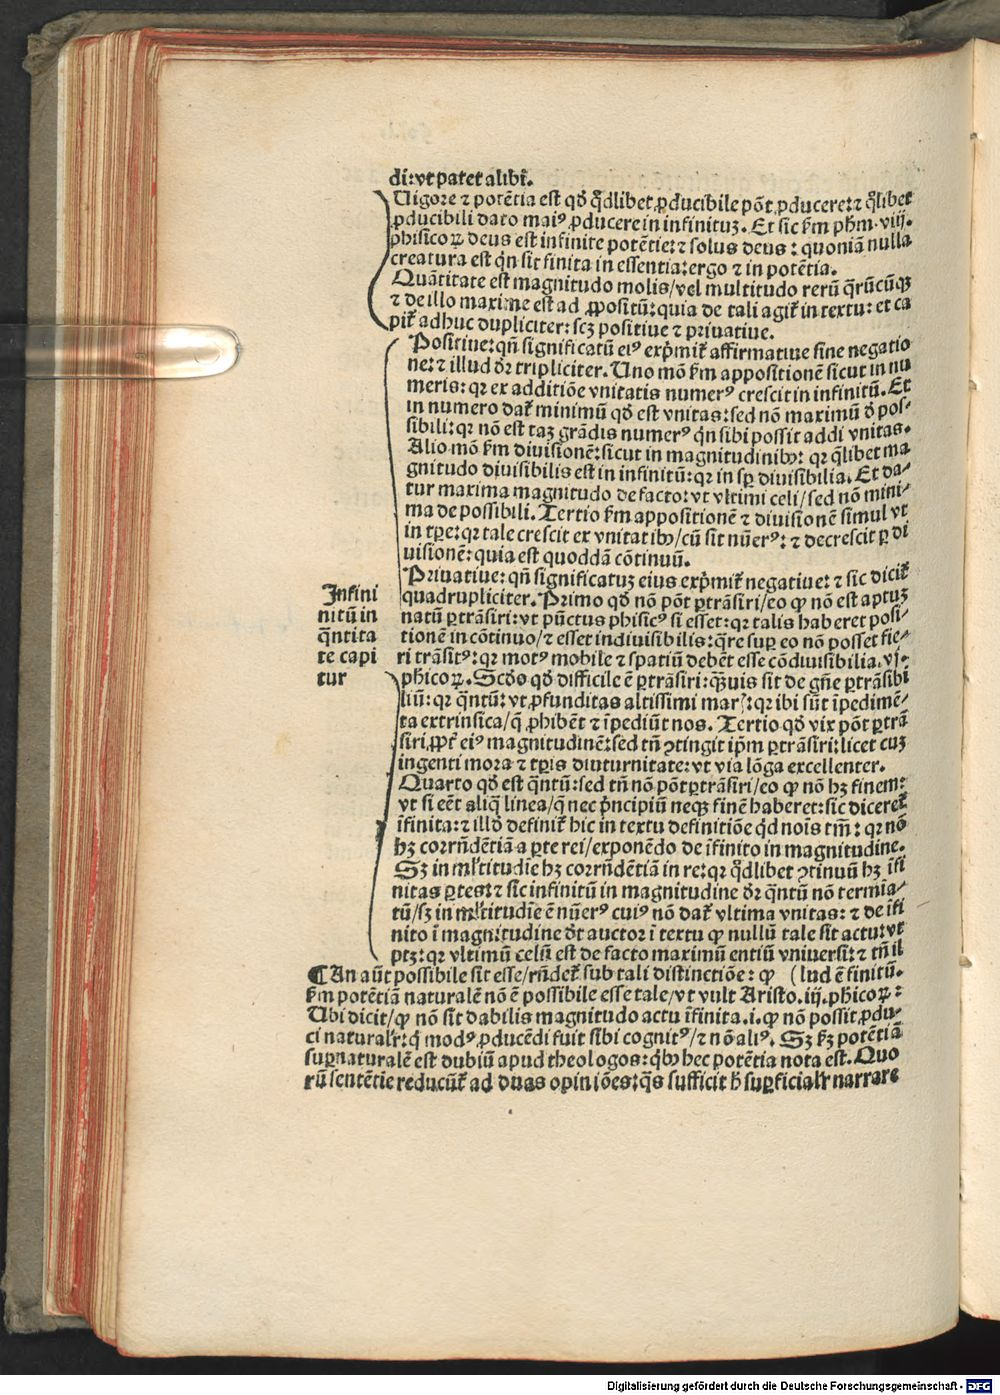 di: vt patet alibi.
Uigore ⁊ potẽtia est qđ q̃dlibet ꝓducibile põt ꝓducere: ⁊ q̃libet
ꝓducibili dato maiꝰ ꝓducere in infinituꝫ. Et sic ẜm phm̃. viij.
phisicoꝝ deus est infinite potẽtie: ⁊ solus deus: quoniã nulla
creatura est qñ sit finita in essentia: ergo ⁊ in potẽtia.
Quãtitate est magnitudo molis/ vel multitudo rerũ q̃rũcũqꝫ
⁊ de illo maxime est ad ꝓpositũ: quia de tali agit᷑ in textu: et ca
pit᷑ adhuc dupliciter: scꝫ positiue ⁊ priuatiue.
Positiue: qñ significatũ eiꝰ exp̃mit᷑ affirmatiue sine negatio
ne: ⁊ illud dr̃ tripliciter. Uno mõ ẜm appositionẽ sicut in nu
meris: qꝛ ex additiõe vnitatis numerꝰ crescit in infinitũ. Et
in numero dat᷑ minimũ qđ est vnitas: sed nõ maximũ đ pos⸗
sibili: qꝛ nõ est taꝫ grãdis numerꝰ qñ sibi possit addi vnitas.
Alio mõ ẜm diuisionẽ: sicut in magnitudinibꝰ: qꝛ q̃libet ma
gnitudo diuisibilis est in infinitũ: qꝛ in sꝑ diuisibilia. Et da⸗
tur maxima magnitudo de facto: vt vltimi celi/ sed nõ mini⸗
ma de possibili. Tertio ẜm appositionẽ ⁊ diuisionẽ simul vt
in tꝑe: qꝛ tale crescit ex vnitatibꝰ/ cũ sit nũerꝰ: ⁊ decrescit ꝑ di
uisionẽ: quia est quoddã cõtinuũ.
Priuatiue: qñ significatuꝫ eius exp̃mit᷑ negatiue: ⁊ sic dicit᷑
quadrupliciter. Primo qđ nõ põt ꝑtrãsiri/ eo ꝙ nõ est aptuꝫ
natũ ꝑtrãsiri: vt pũctus phisicꝰ si esset: qꝛ talis haberet posi⸗
tionẽ in cõtinuo/ ⁊ esset indiuisibilis: q̃re suꝑ eo nõ posset fie⸗
ri trãsitꝰ: qꝛ motꝰ mobile ⁊ spatiũ debẽt esse cõdiuisibilia. vj.
phicoꝝ. Scđo qđ difficile ẽ ꝑtrãsiri: q̃ꝫuis sit de gñe ꝑtrãsibi
liũ: qꝛ q̃ntũ: vt ꝓfunditas altissimi marꝭ: qꝛ ibi sũt ĩpedimẽ⸗
ta extrinsica/ q̃ ꝓhibẽt ⁊ ĩpediũt nos. Tertio qđ vix põt ꝑtrã
siri ꝓpt᷑ eiꝰ magnitudinẽ: sed tñ ꝯtingit ip̃m ꝑtrãsiri: licet cuꝫ
ingenti mora ⁊ tꝑis diuturnitate: vt via lõga excellenter.
Quarto qđ est q̃ntũ: sed tñ nõ põt ꝑtrãsiri/ eo ꝙ nõ hꝫ finem:
vt si eẽt aliq̃ linea/ q̃ nec p̃ncipiũ neqꝫ finẽ haberet: sic diceret᷑
ĩfinita: ⁊ illđ definit᷑ hic in textu definitiõe q̃d noĩs tm̃: qꝛ nõ
hꝫ corrñdẽtiã a ꝑte rei/ exponẽdo de ĩfinito in magnitudine.
Sꝫ in ml̃titudĩe hꝫ corrñdẽtiã in re: qꝛ q̃dlibet ꝯtinuũ hꝫ ĩfi
nitas ꝑtes: ⁊ sic infinitũ in magnitudine dr̃ q̃ntũ nõ termĩa⸗
tũ/ sꝫ in ml̃titudĩe ẽ nũerꝰ cuiꝰ nõ dat᷑ vltima vnitas: ⁊ de ĩfi
nito ĩ magnitudine dt̃ auctor ĩ textu ꝙ nullũ tale sit actu: vt
ptꝫ: qꝛ vltimũ celũ est de facto maximũ entiũ vniuersi: ⁊ tñ il
Infini
nitũ in
q̃ntita
te capi
tur
¶ An aũt possibile sit esse/ rñdet᷑ sub tali distinctiõe: ꝙ (lud ẽ finitũ.
ẜm potẽtiã naturalẽ nõ ẽ possibile esse tale/ vt vult Aristo. iij. phicoꝝ:
Ubi dicit/ ꝙ nõ sit dabilis magnitudo actu ĩfinita. i. ꝙ nõ possit ꝓdu⸗
ci natural̃r: q̃ modꝰ ꝓducẽdi fuit sibi cognitꝰ/ ⁊ nõ aliꝰ. Sꝫ ẜꝫ potẽtiã
suꝑnaturalẽ est dubiũ apud theologos: q̃bꝰ hec potẽtia nota est. Quo
rũ sentẽtie reducũt᷑ ad duas opiniões: q̃s sufficit h̃ suꝑficial̃r narrare
Digitalisierung gefördert durch die Deutsche Forschungsgemeinschaft - DFG